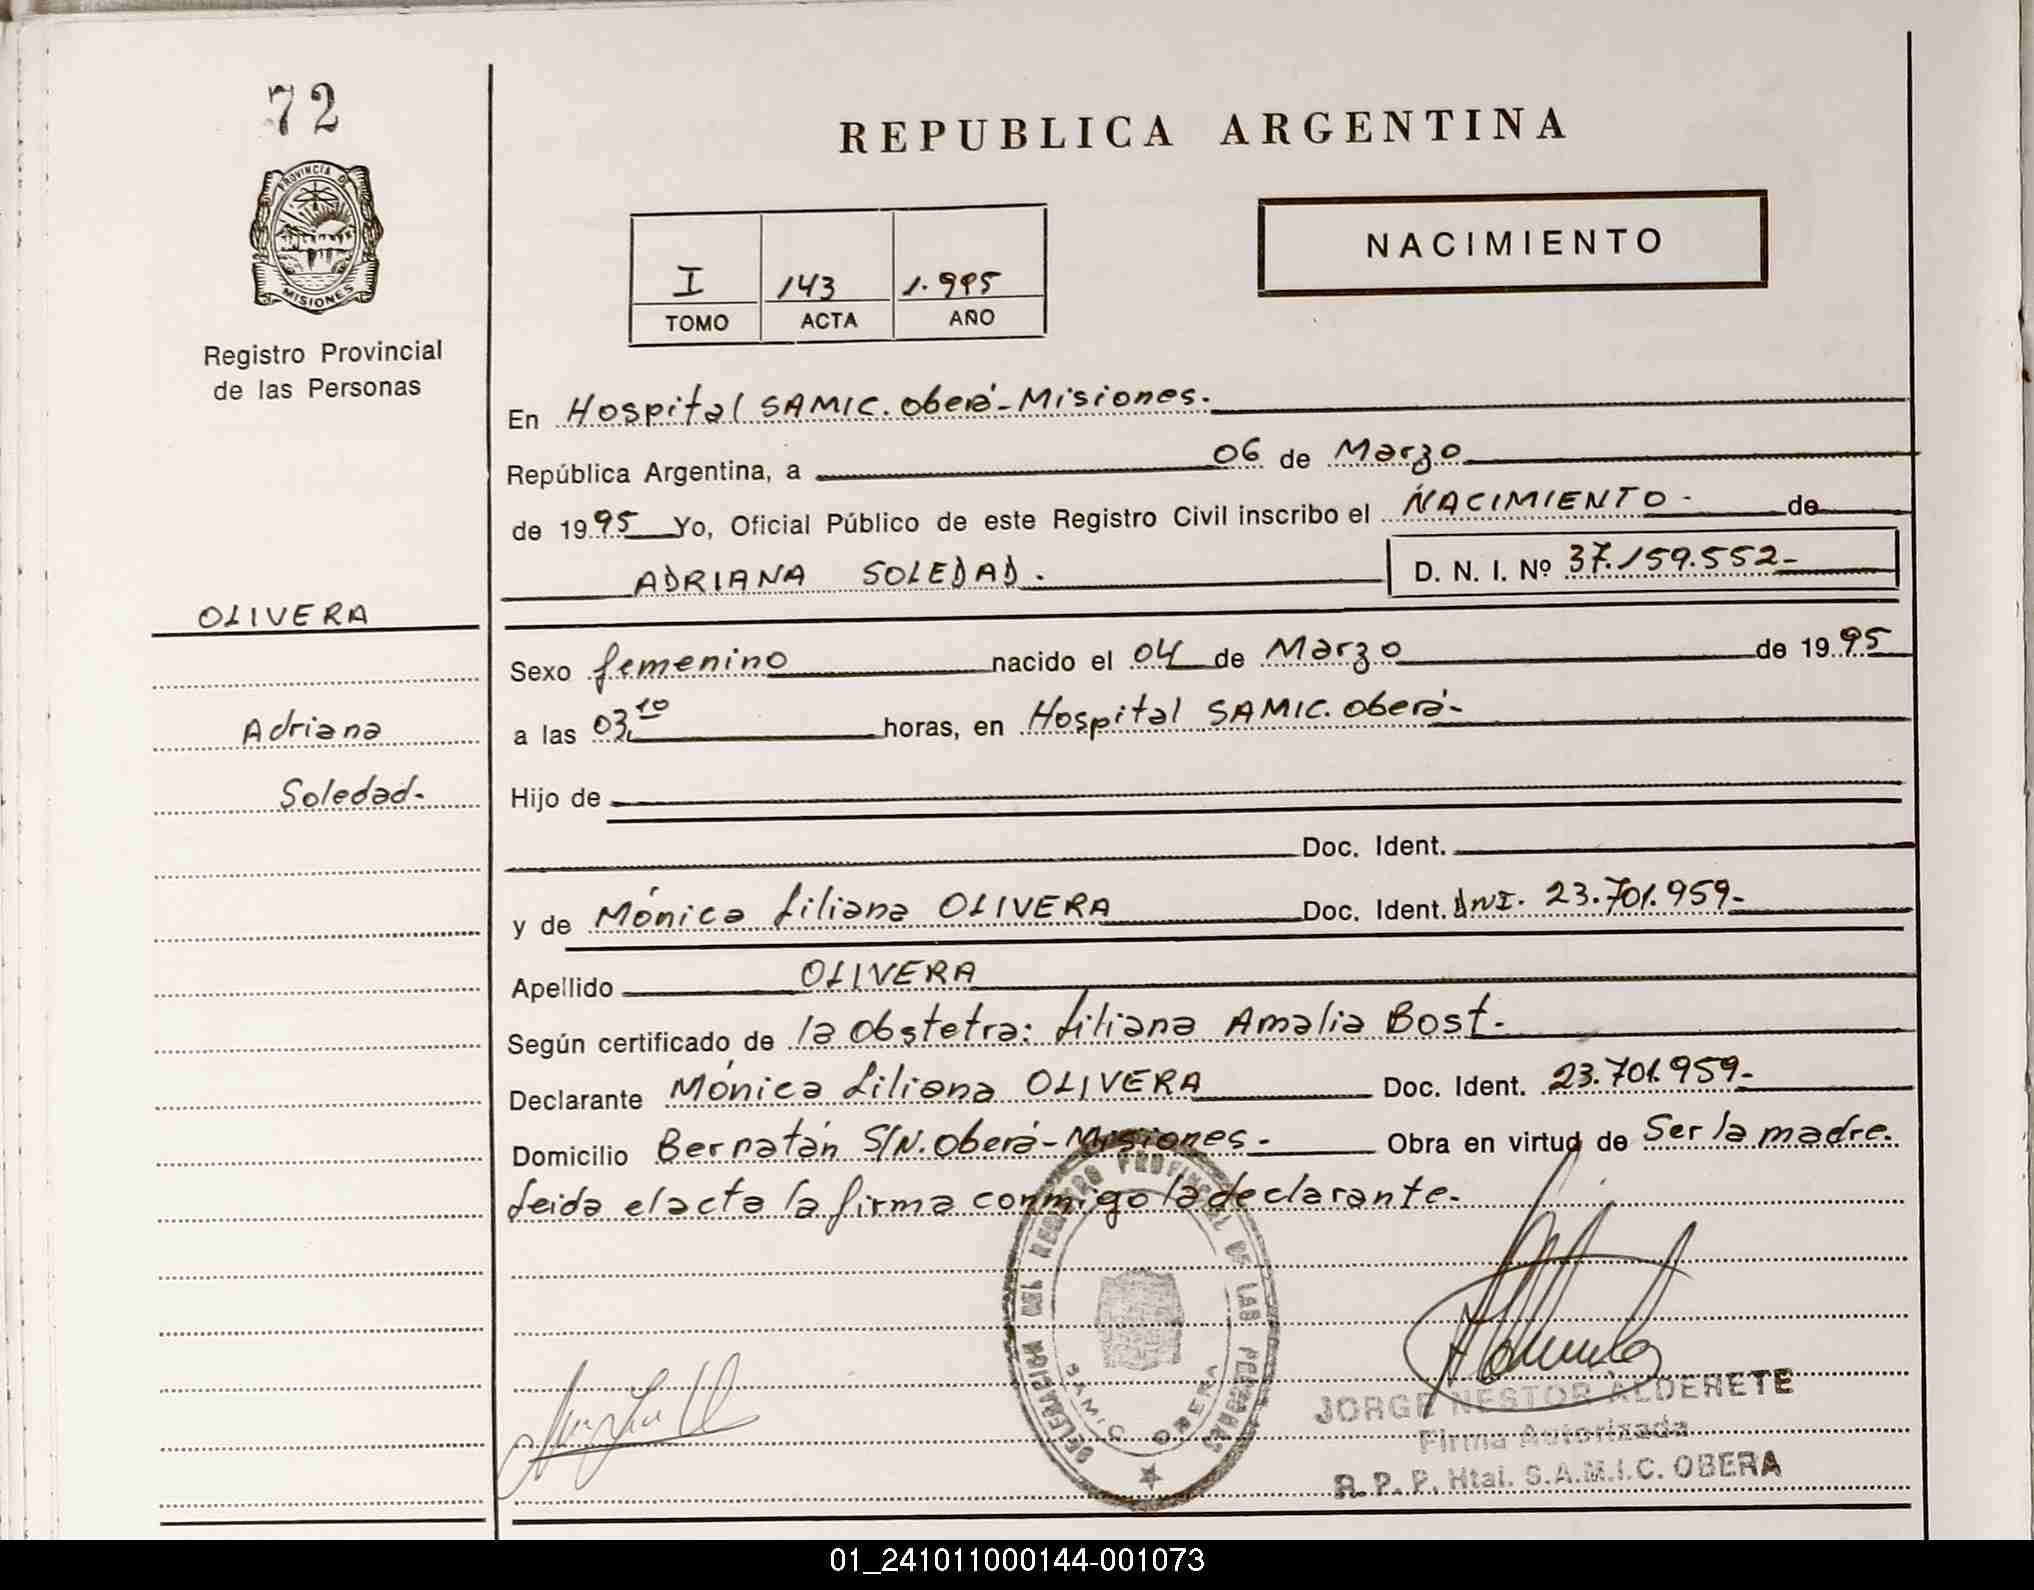 72
PROVINCIA DE
MISIONES
Registro Provincial
de las Personas
OLIVERA
Adriana
Soledad-
REPUBLICA ARGENTINA
NACIMIENTO
I 143 1.995
TOMO ACTA AÑO
En Hospital SAMIC. Oberá-Misiones.
República Argentina, a 06 de Marzo
de 1995 Yo, Oficial Público de este Registro Civil inscribo el NACIMIENTO - de
ADRIANA SOLEDAD. D. N. I. Nº 37.159.552-
Sexo femenino nacido el 04 de Marzo de 1995
a las 03,10 horas, en Hospital SAMIC. Oberá-
Hijo de
Doc. Ident.
y de Mónica Liliana OLIVERA Doc. Ident. DNI. 23.701.959-
Apellido OLIVERA
Según certificado de la Obstetra: Liliana Amalia Bost.
Declarante Mónica Liliana OLIVERA Doc. Ident. 23.701.959-
Domicilio Bernatán S/N. Oberá-Misiones- Obra en virtud de Ser la madre.
Leida el acta la firma conmigo la declarante.
DELEGACION DEL REGISTRO PROVINCIAL DE LAS PERSONAS
SAMIC OBERA
JORGE NESTOR ALDERETE
Firma Autorizada
R. P. P. Htal. S.A.M.I.C. OBERA
01_241011000144-001073